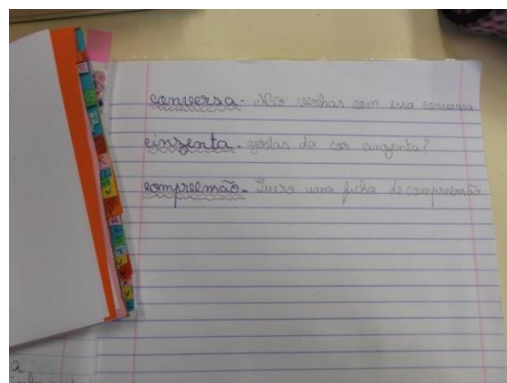 conversa - Não venhas com essa conversa
cinzenta - gostas da cor cinzenta?
compreensão - Quero uma ficha de compreensão
a